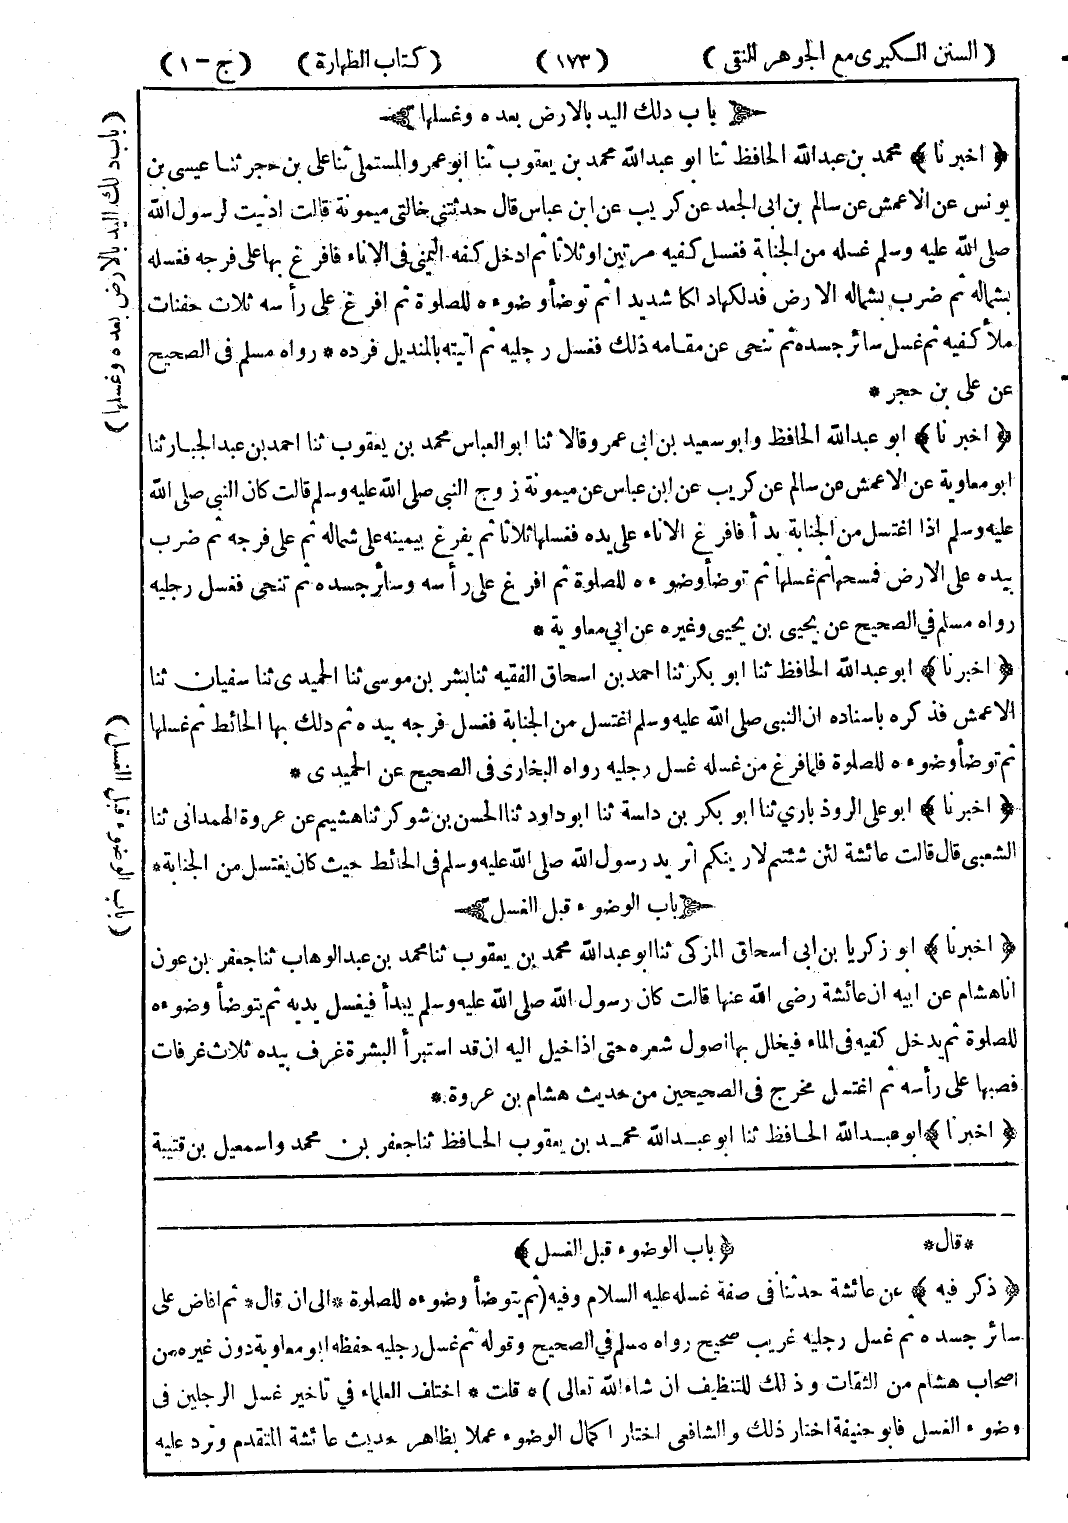 (السنن الكبرى مع الجوهر النقى) (١٧٣) (كتاب الطهارة) (ج-١)
باب دلك اليد بالارض بعده وغسلها
(اخبرنا) محمد بن عبدالله الحافظ ثنا ابو عبدالله محمد بن يعقوب ثنا ابو عمرو المستملى ثنا على بن حجر ثنا عيسى بن
يونس عن الاعمش عن سالم بن ابى الجعد عن كريب عن ابن عباس قال حدثتنى خالتى ميمونة قالت ادنيت لرسول الله
صلى الله عليه وسلم غسله من الجنابة فغسل كفيه مرتين او ثلاثا ثم ادخل كفه اليمنى فى الاناء فافرغ بها على فرجه فغسله
بشماله ثم ضرب بشماله الارض فدلكها دلكا شديدا ثم توضأ وضوءه للصلوة ثم افرغ على رأسه ثلاث حفنات
ملأ كفيه ثم غسل سائر جسده ثم تنحى عن مقامه ذلك فغسل رجليه ثم اتيته بالمنديل فرده * رواه مسلم فى الصحيح
عن على بن حجر *
(اخبرنا) ابو عبدالله الحافظ وابو سعيد بن ابى عمرو قالا ثنا ابو العباس محمد بن يعقوب ثنا احمد بن عبد الجبار ثنا
ابو معاوية عن الاعمش عن سالم عن كريب عن ابن عباس عن ميمونة زوج النبى صلى الله عليه وسلم قالت كان النبى صلى الله
عليه وسلم اذا اغتسل من الجنابة بدأ فافرغ الاناء على يده فغسلها ثلاثا ثم يفرغ بيمينه على شماله ثم على فرجه ثم ضرب
بيده على الارض فمسحها ثم غسلها ثم توضأ وضوءه للصلوة ثم افرغ على رأسه وسائر جسده ثم تنحى فغسل رجليه
رواه مسلم فى الصحيح عن يحيى بن يحيى وغيره عن ابى معاوية *
(اخبرنا) ابو عبدالله الحافظ ثنا ابو بكر ثنا احمد بن اسحاق الفقيه ثنا بشر بن موسى ثنا الحميدى ثنا سفيان ثنا
الاعمش فذكره باسناده ان النبى صلى الله عليه وسلم اغتسل من الجنابة فغسل فرجه بيده ثم دلك بها الحائط ثم غسلها
ثم توضأ وضوءه للصلوة فلما فرغ من غسله غسل رجليه رواه البخارى فى الصحيح عن الحميدى *
(اخبرنا) ابو على الروذبارى ثنا ابو بكر بن داسة ثنا ابو داود ثنا الحسن بن شوكر ثنا هشيم عن عروة الهمدانى ثنا
الشعبى قال قالت عائشة لئن شئتم لارينكم اثر يد رسول الله صلى الله عليه وسلم فى الحائط حيث كان يغتسل من الجنابة *
باب الوضوء قبل الغسل
(اخبرنا) ابو زكريا بن ابى اسحاق المزكى ثنا ابو عبدالله محمد بن يعقوب ثنا محمد بن عبد الوهاب ثنا جعفر بن عون
انا هشام عن ابيه ان عائشة رضى الله عنها قالت كان رسول الله صلى الله عليه وسلم يبدأ فيغسل يديه ثم يتوضأ وضوءه
للصلوة ثم يدخل كفيه فى الماء فيخلل بها اصول شعره حتى اذا خيل اليه ان قد استبرأ البشرة غرف بيده ثلاث غرفات
فصبها على رأسه ثم اغتسل مخرج فى الصحيحين من حديث هشام بن عروة *
(اخبرنا) ابو عبدالله الحافظ ثنا ابو عبدالله محمد بن يعقوب الحافظ ثنا جعفر بن محمد واسمعيل بن قتيبة
*قال* (باب الوضوء قبل الغسل)
(ذكر فيه) عن عائشة حدثنا فى صفة غسله عليه السلام وفيه (ثم يتوضأ وضوءه للصلوة * الى ان قال * ثم افاض على
سائر جسده ثم غسل رجليه غريب صحيح رواه مسلم فى الصحيح وقوله ثم غسل رجليه حفظه ابو معاوية دون غيره من
اصحاب هشام من الثقات وذلك للتنظيف ان شاء الله تعالى) * قلت * اختلف العلماء فى تاخير غسل الرجلين فى
وضوء الغسل فابو حنيفة اختار ذلك والشافعى اختار اكمال الوضوء عملا بظاهر حديث عائشة المتقدم وترد عليه
(باب دلك اليد بالارض بعده وغسلها)
(باب الوضوء قبل الغسل)